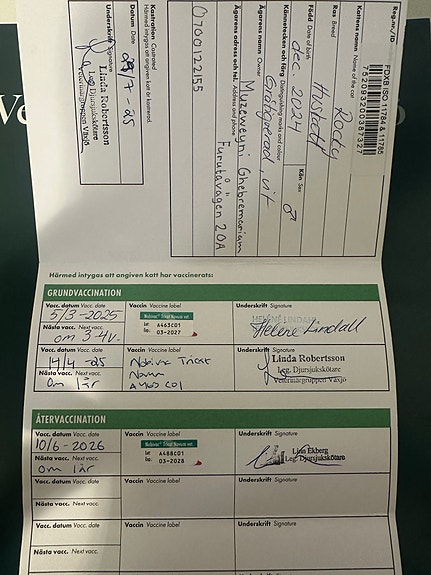 Reg.nr/ID
FDXB ISO 11784 & 11785
752093200387327
Kattens namn Name of the cat
Rocky
Ras Breed
Huskatt
Född Date of birth
dec 2024
Kön Sex
♂
Kännetecken och färg Distinguishing marks and colour
Gråtigrerad, vit
Ägarens namn Owner
Muzeweyni Ghebremariam
Ägarens adress och tel. Address and phone
Furutåvägen 20A
0700122155
Kastration Castrated
Härmed intygas att angiven katt är kastrerad.
Datum Date
25/7-25
Underskrift Signature
Linda Robertsson
Leg. Djursjukskötare
Veterinärgruppen Växjö
Härmed intygas att angiven katt har vaccinerats:
GRUNDVACCINATION
Vacc. datum Vacc. date
5/3-2025
Nästa vacc. Next vacc.
om 3-4v.
Vaccin Vaccine label
Nobivac® Tricat Novum vet.
Lot A463C01
Exp. 03-2027
Underskrift Signature
HELENE LINDAHL
Helene Lindall
Vacc. datum Vacc. date
14/4-25
Nästa vacc. Next vacc.
Om 1år
Vaccin Vaccine label
Nobivac Tricat
Novum
A463C01
Underskrift Signature
Linda Robertsson
Leg. Djursjukskötare
Veterinärgruppen Växjö
ÅTERVACCINATION
Vacc. datum Vacc. date
10/6-2026
Nästa vacc. Next vacc.
om 1år
Vaccin Vaccine label
Nobivac® Tricat Novum vet.
Lot A488C01
Exp. 03-2028
Underskrift Signature
Linn Ekberg
Leg. Djursjukskötare
Vacc. datum Vacc. date
Vaccin Vaccine label
Underskrift Signature
Nästa vacc. Next vacc.
Vacc. datum Vacc. date
Vaccin Vaccine label
Underskrift Signature
Nästa vacc. Next vacc.